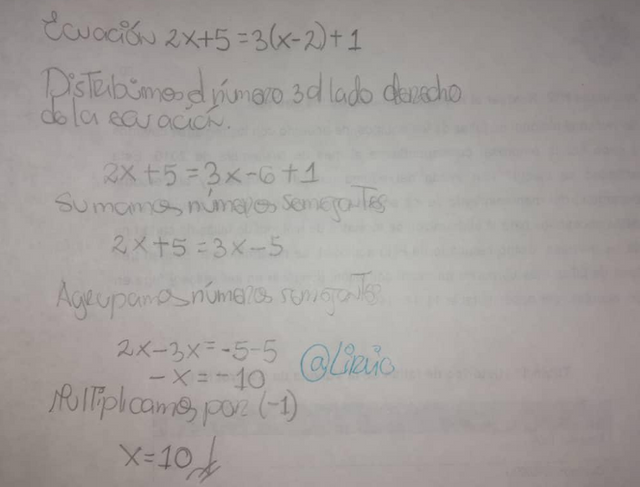 Ecuación 2x+5=3(x-2)+1
Distribuimos el número 3 al lado derecho
de la ecuación.
2x+5=3x-6+1
Sumamos números semejantes
2x+5=3x-5
Agrupamos números semejantes
2x-3x=-5-5
-x=-10
@Lirio
Multiplicamos por (-1)
x=10